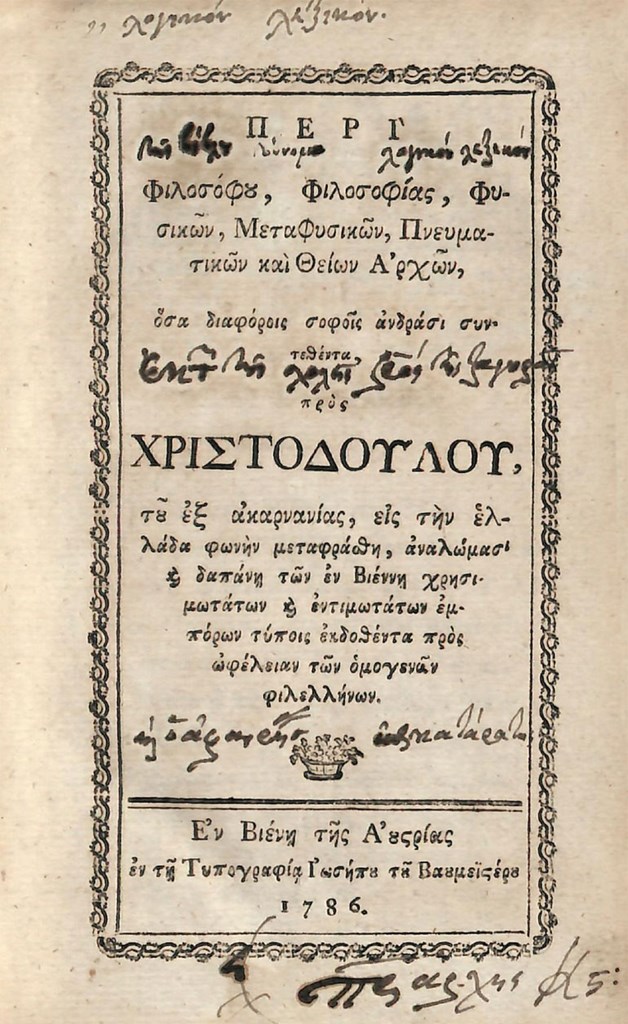 λογικὸν λεξικόν.
ΠΕΡΙ
λογικὸν λεξικὸν
Φιλοσόφȣ, Φιλοσοφίας, Φυ-
σικῶν, Μεταφυσικῶν, Πνευμα-
τικῶν καὶ Θείων Α'ρχῶν,
ὅσα διαφόροις σοφοῖς ἀνδράσι συν-
τεθέντα,
πρὸς
ΧΡΙΣΤΟΔΟΥΛΟΥ,
τȣ͂ ἐξ ἀκαρνανίας, εἰς τὴν ἑλ-
λάδα φωνὴν μεταφράσθη, ἀναλώμασι
ϗ δαπάνῃ τῶν ἐν Βιέννῃ χρησι-
μωτάτων ϗ ἐντιμωτάτων ἐμ-
πόρων τύποις ἐκδοθέντα πρὸς
ὠφέλειαν τῶν ὁμογενῶν
φιλελλήνων.
Ε'ν Βιένῃ τῆς Α'ȣϛρίας
ἐν τῇ Τυπογραφίᾳ Ι'ωσήπȣ τȣ͂ Βαȣμεϊϛέρȣ
1786.